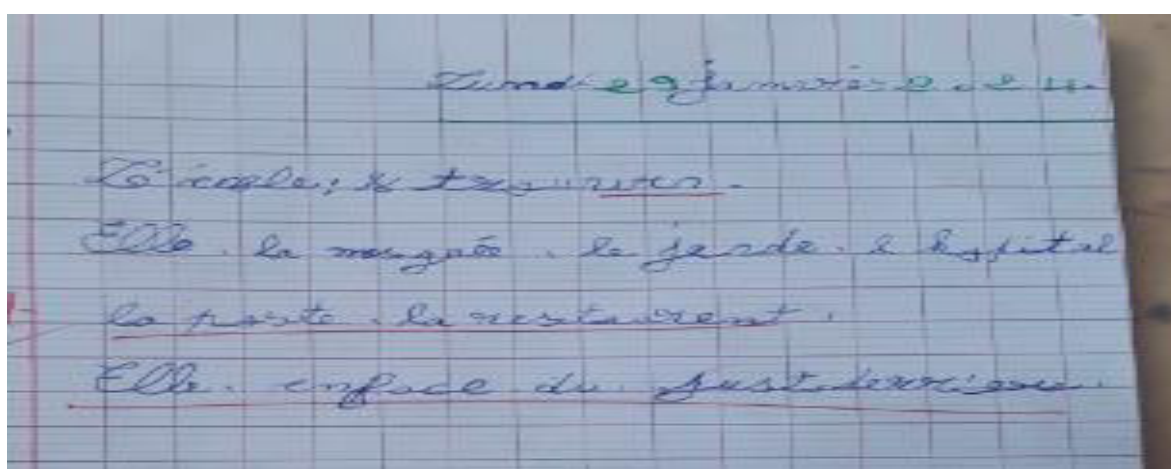 Lundi 29 janvier 2024
L'école,
Elle. la mosquée. le jarde. l hopital
la poste. la restaurent.
Elle. enface du. justderrière.